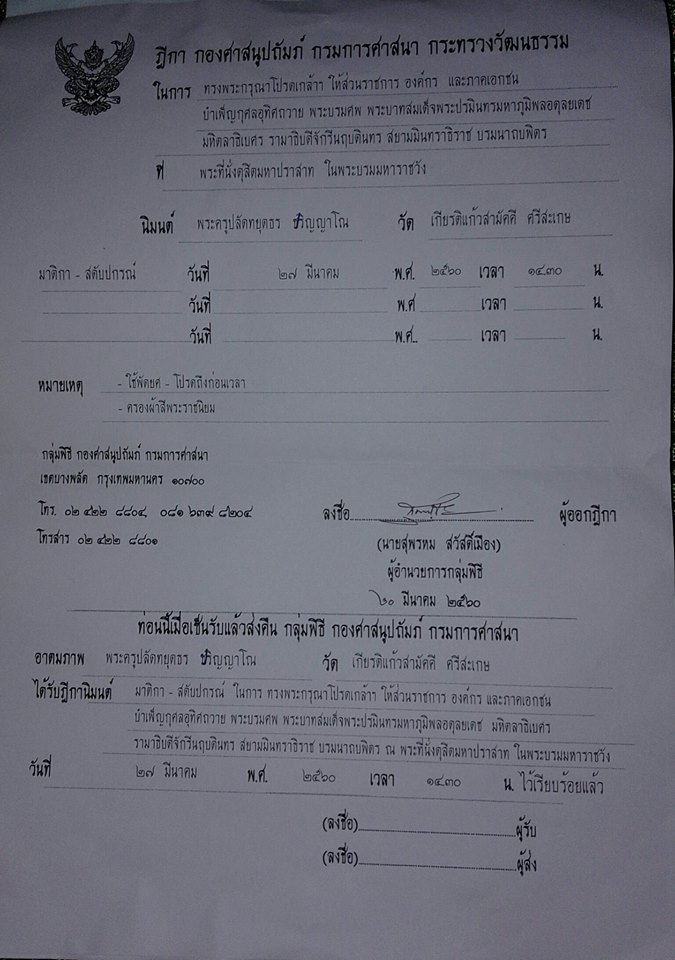 ฎีกา กองศาสนูปถัมภ์ กรมการศาสนา กระทรวงวัฒนธรรม
ในการ ทรงพระกรุณาโปรดเกล้าฯ ให้ส่วนราชการ องค์กร และภาคเอกชน
บำเพ็ญกุศลอุทิศถวาย พระบรมศพ พระบาทสมเด็จพระปรมินทรมหาภูมิพลอดุลยเดช
มหิตลาธิเบศร รามาธิบดีจักรีนฤบดินทร สยามมินทราธิราช บรมนาถบพิตร
ที่ พระที่นั่งดุสิตมหาปราสาท ในพระบรมมหาราชวัง
นิมนต์ พระครูปลัดทยุตธร ริญญาโณ วัด เกียรติแก้วสามัคคี ศรีสะเกษ
มาติกา - สดับปกรณ์ วันที่ ๒๗ มีนาคม พ.ศ. ๒๕๖๐ เวลา ๑๔.๓๐ น.
วันที่ พ.ศ เวลา น.
วันที่ พ.ศ. เวลา น.
หมายเหตุ - ใช้พัดยศ - โปรดถึงก่อนเวลา
- ครองผ้าสีพระราชนิยม
กลุ่มพิธี กองศาสนูปถัมภ์ กรมการศาสนา
เขตบางพลัด กรุงเทพมหานคร ๑๐๗๐๐
โทร. ๐๒ ๔๒๒ ๘๘๐๔, ๐๘๑ ๖๓๙ ๘๒๐๔ ลงชื่อ ผู้ออกฎีกา
โทรสาร ๐๒ ๔๒๒ ๘๘๐๑ (นายสุพรหม สวัสดิ์เมือง)
ผู้อำนวยการกลุ่มพิธี
๒๐ มีนาคม ๒๕๖๐
ท่อนนี้เมื่อเซ็นรับแล้วส่งคืน กลุ่มพิธี กองศาสนูปถัมภ์ กรมการศาสนา
อาตมภาพ พระครูปลัดทยุตธร ริญญาโณ วัด เกียรติแก้วสามัคคี ศรีสะเกษ
ได้รับฎีกานิมนต์ มาติกา - สดับปกรณ์ ในการ ทรงพระกรุณาโปรดเกล้าฯ ให้ส่วนราชการ องค์กร และภาคเอกชน
บำเพ็ญกุศลอุทิศถวาย พระบรมศพ พระบาทสมเด็จพระปรมินทรมหาภูมิพลอดุลยเดช มหิตลาธิเบศร
รามาธิบดีจักรีนฤบดินทร สยามมินทราธิราช บรมนาถบพิตร ณ พระที่นั่งดุสิตมหาปราสาท ในพระบรมมหาราชวัง
วันที่ ๒๗ มีนาคม พ.ศ. ๒๕๖๐ เวลา ๑๔.๓๐ น. ไว้เรียบร้อยแล้ว
(ลงชื่อ) ผู้รับ
(ลงชื่อ) ผู้ส่ง